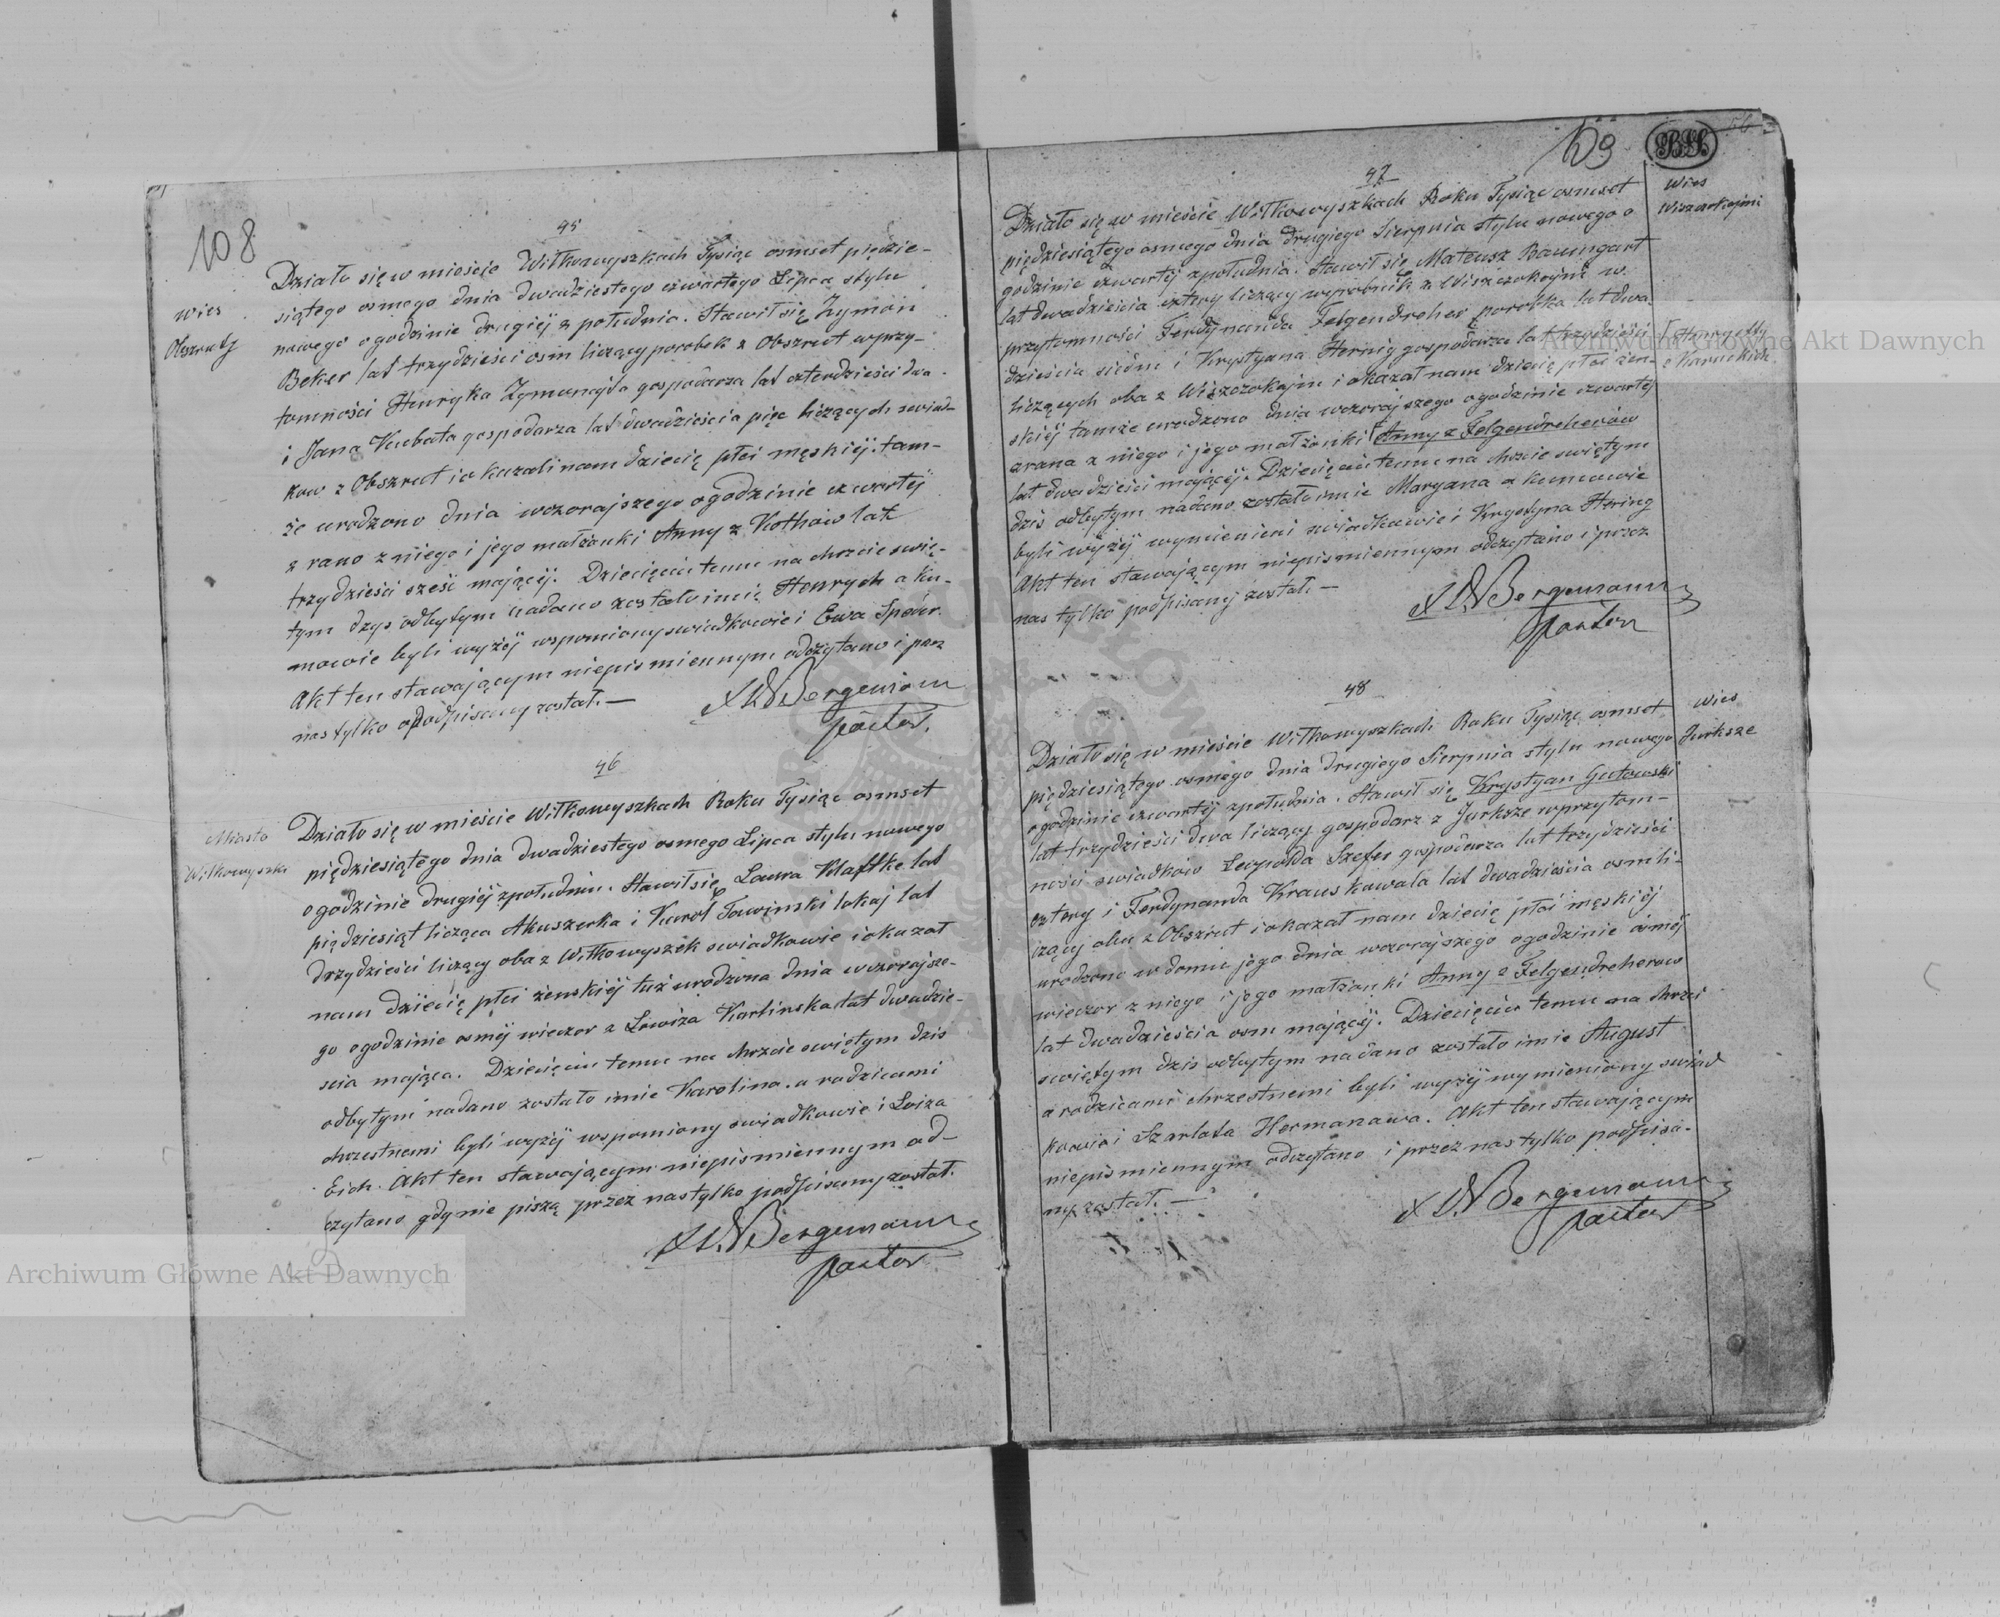 108
45
wies
Obszruty
Działo się w mieście Wiłkowyszkach Tysiąc osmset piędzie-
siątego osmego dnia dwudziestego czwartego Lipca stylu
nowego o godzinie drugiéj z południa. Stawił się Zymon
Beker lat trzydzieści osm liczący parobek z Obszrut w przy-
tomności Henryka Zymunajta gospodarza lat czterdzieści dwa
i Jana Kubata gospodarza lat dwadzieścia pięc liczących swiad-
kow z Obszrut i okazali nam dziecię płci męskiéj tam-
że urodzono dnia wczorajszego o godzinie czwartéj
z rano z niego i jego małżonki Anny z Kothow lat
trzydzieści sześć mającéj. Dziecięciu temu na chrzcie swię-
tym dzys odbytym nadano zostało imię Henrych a ku-
mowie byli wyżéj wspomiony swiadkowie i Ewa
Akt ten stawającym niepismiennym odczytano i przez
nas tylko podpisany został. —
Bergemann
pastor.
46
Miasto
Wiłkowyszki
Działo się w mieście Wiłkowyszkach Roku Tysiąc osmset
piędziesiątego dnia dwudziestego osmego Lipca stylu nowego
o godzinie drugiéj z południu. Stawił się Laura Klaffke lat
piędziesiąt licząca Akuszerka i Karol Tawinski lokaj lat
drzydzieści liczący oba z Wiłkowyszek swiadkowie i okazał
nam dziecię płci żenskiéj tuż urodzona dnia wczorajsze-
go o godzinie osmej wieczor z Lowiza Karlinska lat dwadzie-
scia mająca. Dziecięciu temu na chrzcie swiętym dzis
odbytym nadano zostało imie Karolina. a rodzicami
chrzestnemi byli wyżéj wspomiony swiadkowie i Luiza
Eich. Akt ten stawającym niepismiennym od-
czytano gdy nie piszą przez nas tylko podpisany został.
Bergemann
pastor
109
47
wies
Wiszczokajmi
Działo się w mieście Wiłkowyszkach Roku Tysiąc osmset
piędziesiątego osmego dnia drugiego Sierpnia stylu nowego o
godzinie czwartéj z południa. Stawił się Mateusz Baumgart
lat dwadzieścia cztery liczący wyrobnik z Wiszczokajm w
przytomności Ferdynanda Felgendreher parobka lat dwa
dzieścia siedm i Krystyana Hernig gospodarza lat trzydzieści
liczących oba z Wiszczokajm i okazał nam dziecię płci żen-
skiéj tamże urodzono dnia wczorajszego o godzinie czwartéj
z rana z niego i jego małżonki Anny z Felgendreherów
lat dwadzieści mającéj. Dziecięciu temu na chrzcie swiętym
dzis odbytym nadano zostało imie Maryana a kumowie
byli wyżéj wymienieni swiadkowie i Krystyna Hering
Akt ten stawającym niepismiennym odczytano i przez
nas tylko podpisany został. —
Bergemann
pastor
48
wies
Jurksze
Działo się w mieście Wiłkowyszkach Roku Tysiąc osmset
piędziesiątego osmego dnia drugiego Sierpnia stylu nowego
o godzinie czwartéj z południa. Stawił się Krystyan Gutowski
lat trzydzieści dwa liczący gospodarz z Jurksze w przytom-
ności swiadków Leopolda Szefer gospodarza lat trzydzieści
cztery i Ferdynanda Kraus kowala lat dwadzieścia osm li-
czący oba z Obszrut i okazał nam dziecię płci męskiéj
urodzono w domu jego dnia wczorajszego o godzinie osméj
wieczor z niego i jego małżonki Anny z Felgendreherow
lat dwadzieścia osm mającéj. Dziecięciu temu na chrzci
swiętym dzis odbytym nadano zostało imie August
a rodzicami chrzestnemi byli wyżéj wymieniony swiad
kowie i Szarlota Hermanawa. Akt ten stawającym
niepismiennym odczytano i przez nas tylko podpisa-
ny został. —
Bergemann
pastor
Archiwum Główne Akt Dawnych
Archiwum Główne Akt Dawnych